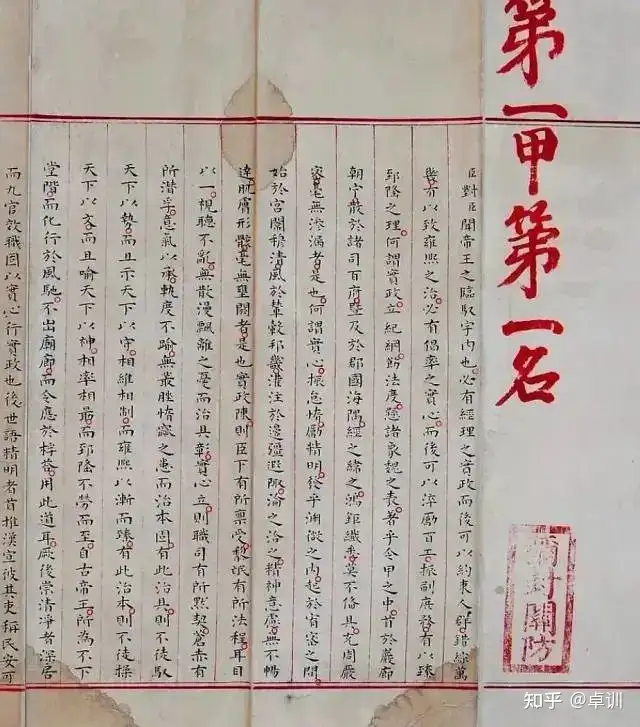 第一甲第一名
彌封關防
臣對臣聞帝王之臨馭宇內也必有經理之實政而後可以約束人群錯綜萬
幾有以致雍熙之治必有倡率之實心而後可以淬勵百工振刷庶務有以臻
郅隆之理何謂實政立紀綱飭法度懸諸象魏之表著乎令甲之中首於巖廊
朝宁散於諸司百府暨及於郡國海隅經之緯之鴻鉅纖悉莫不備具充周嚴
密毫無滲漏者是也何謂實心振怠惰勵精明發乎淵微之內起於宥密之間
始於宮闈穆清風於輦轂邦畿灌注於邊疆遐陬淪之洽之精神意慮無不暢
達肌膚形骸毫無壅閼者是也實政陳則臣下有所稟受黎氓有所法程耳目
以一視聽不亂無散漫飄離之憂而治具彰實心立則職司有所默契蒼赤有
所潛孚意氣以承軌度不踰無叢脞惰窳之患而治本固有此治具則不徒馭
天下以勢而且示天下以守相維相制而雍熙以漸而臻有此治本則不徒操
天下以文而且喻天下以神相率相勗而郅隆不勞而至自古帝王所為不下
堂階而化行於風馳不出廟廊而令應於桴答用此道耳厥後崇清淨者深居
而九官效職固以實心行實政也後世語精明者首推漢宣彼其吏稱民安可
知乎 @卓训